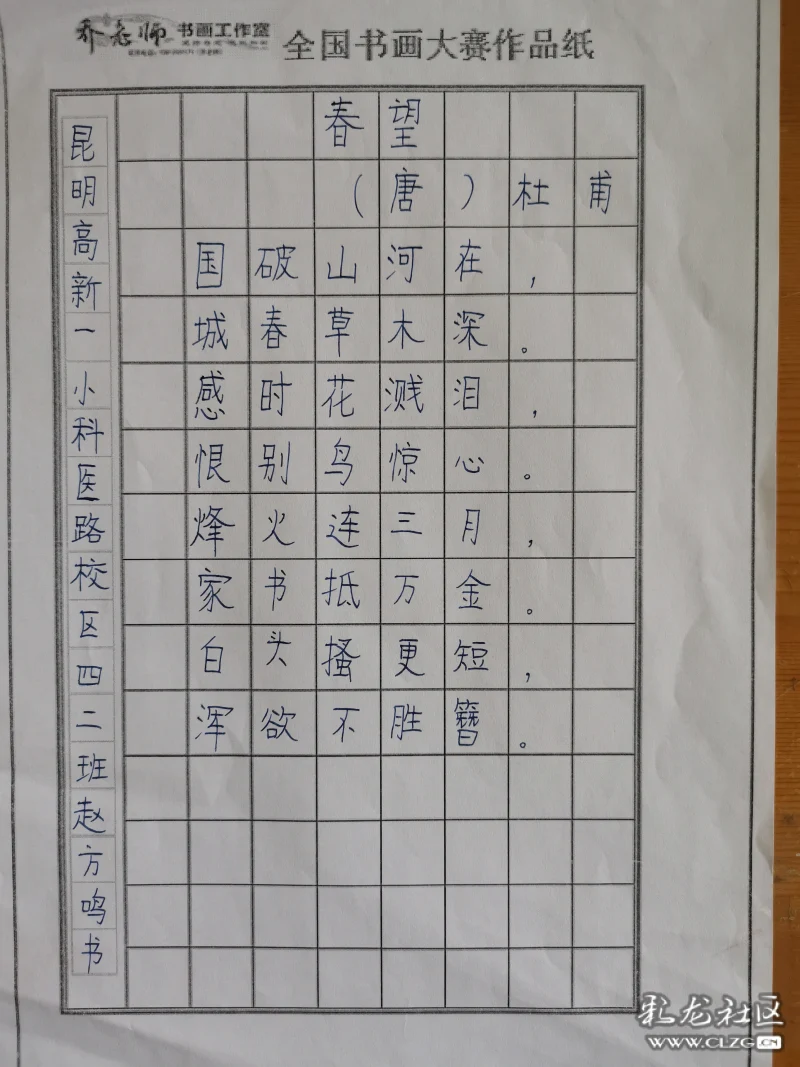 乔老师 书画工作室 全国书画大赛作品纸
春望
（唐）杜甫
国破山河在，
城春草木深。
感时花溅泪，
恨别鸟惊心。
烽火连三月，
家书抵万金。
白头搔更短，
浑欲不胜簪。
昆明高新一小科医路校区四二班赵方鸣书
彩龙社区
WWW.CLZG.CN